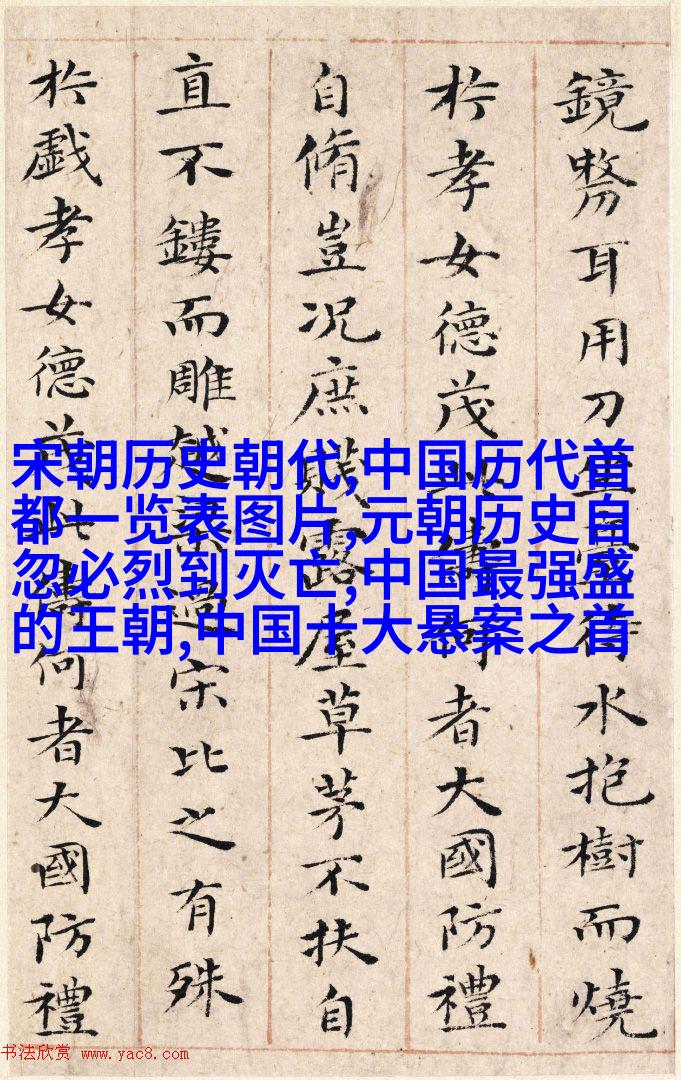 宋朝历史朝代,中国历代首
都一览表图片,元朝历史自
忽必烈到灭亡,中国最强盛
的王朝,中国十大悬案之首
鏡剺耳用刀待水抱樹而燒
於孝女德茂何者大國防禮
自脩豈況庶賤露屋草茅不扶自
直不鏤而雕越過宋比之有殊
於戲孝女德茂此儔何者大國防禮
书法欣赏 www.yac8.com